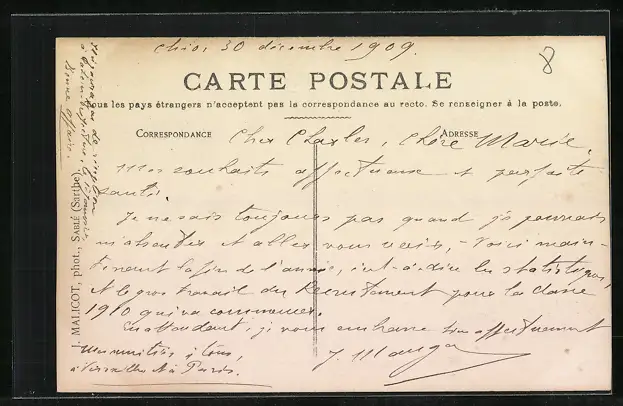 30 décembre 1909.
8
CARTE POSTALE
Tous les pays étrangers n'acceptent pas la correspondance au recto. Se renseigner à la poste.
CORRESPONDANCE
ADRESSE
Cher Charles, Chère Marie,
Mes souhaits affectueux et parfaite
santé.
Je ne sais toujours pas quand je pourrai
et aller vous voir, - Voici main-
tenant la fin de l'année, c'est-à-dire les statistiques,
et le gros travail du Recrutement pour la classe
1910 qui va commencer.
En attendant, je vous embrasse bien affectueusement
à tous,
à Versailles et à Paris.
J. MALICOT, phot., SABLÉ (Sarthe)
Bonne